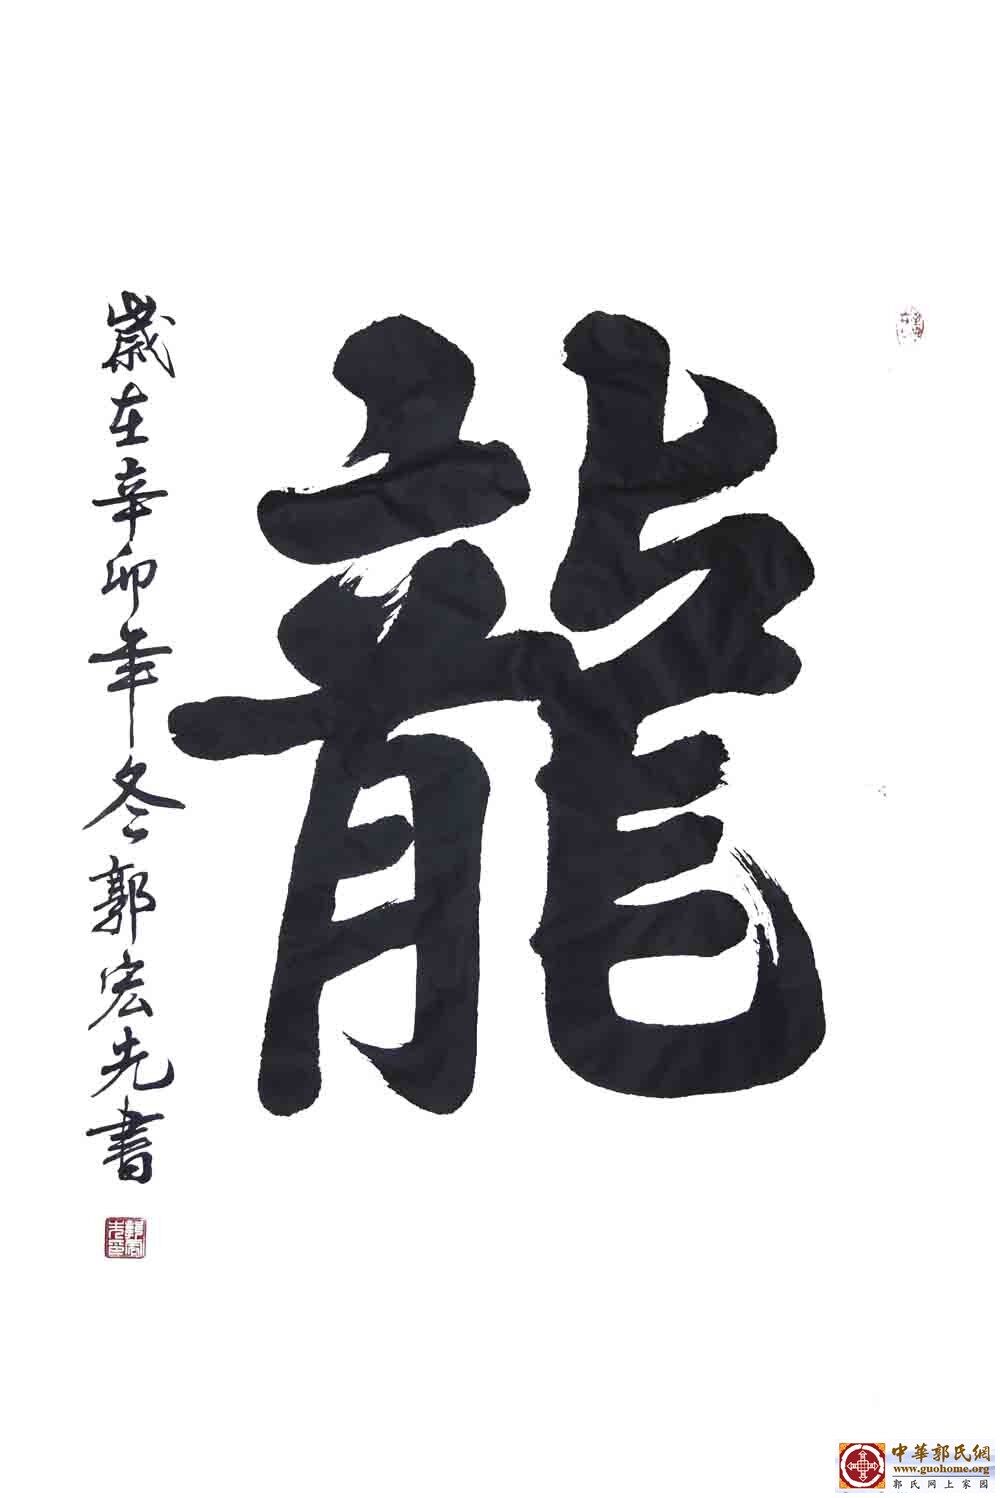 龍
歲在辛卯年冬郭宏先書
郭宏先印
中華郭氏網
www.guohome.org
郭氏网上家园